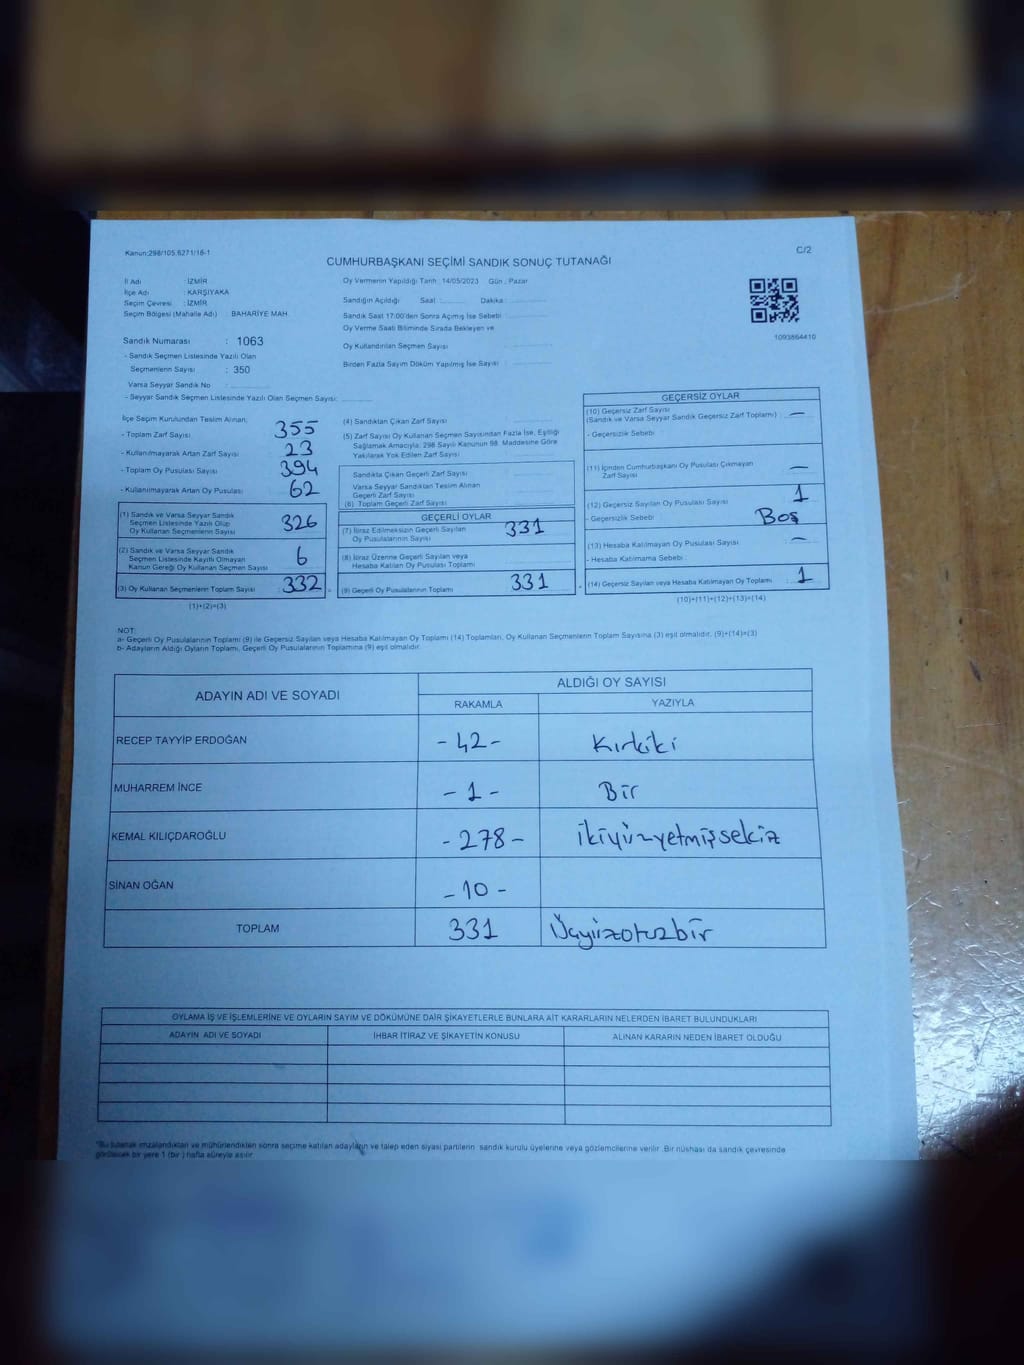 Kanun:298/105,6271/16-1
C/2
CUMHURBAŞKANI SEÇİMİ SANDIK SONUÇ TUTANAĞI
İl Adı : İZMİR
İlçe Adı : KARŞIYAKA
Seçim Çevresi : İZMİR
Seçim Bölgesi (Mahalle Adı) : BAHARİYE MAH.
Sandık Numarası : 1063
- Sandık Seçmen Listesinde Yazılı Olan
Seçmenlerin Sayısı : 350
Varsa Seyyar Sandık No :
- Seyyar Sandık Listesinde Yazılı Olan Seçmen Sayısı:
Oy Vermenin Yapıldığı Tarih :14/05/2023 Gün : Pazar
Sandığın Açıldığı Saat : Dakika :
Sandık Saat 17:00'den Sonra Açımış İse Sebebi :
Oy Verme Saati Bitiminde Sırada Bekleyen ve
Oy Kullandırılan Seçmen Sayısı :
Birden Fazla Sayım Döküm Yapılmış İse Sayısı :
1093864410
İlçe Seçim Kurulundan Teslim Alınan;
- Toplam Zarf Sayısı : 355
- Kullanılmayarak Artan Zarf Sayısı : 23
- Toplam Oy Pusulası Sayısı : 394
- Kullanılmayarak Artan Oy Pusulası : 62
(1) Sandık ve Varsa Seyyar Sandık
Seçmen Listesinde Yazılı Olup
Oy Kullanan Seçmenlerin Sayısı 326
(2) Sandık ve Varsa Seyyar Sandık
Seçmen Listesinde Kayıtlı Olmayan
Kanun Gereği Oy Kullanan Seçmen Sayısı 6
(3) Oy Kullanan Seçmenlerin Toplam Sayısı 332
(1)+(2)=(3)
(4) Sandıktan Çıkan Zarf Sayısı :
(5) Zarf Sayısı Oy Kullanan Seçmen Sayısından Fazla İse, Eşitliği
Sağlamak Amacıyla; 298 Sayılı Kanunun 98. Maddesine Göre
Yakılarak Yok Edilen Zarf Sayısı :
Sandıkta Çıkan Geçerli Zarf Sayısı :
Varsa Seyyar Sandıktan Teslim Alınan
Geçerli Zarf Sayısı :
(6) Toplam Geçerli Zarf Sayısı :
GEÇERLİ OYLAR
(7) İtiraz Edilmeksizin Geçerli Sayılan
Oy Pusulalarının Sayısı : 331
(8) İtiraz Üzerine Geçerli Sayılan veya
Hesaba Katılan Oy Pusulası Toplamı :
(9) Geçerli Oy Pusulalarının Toplamı : 331
GEÇERSİZ OYLAR
(10) Geçersiz Zarf Sayısı
(Sandık ve Varsa Seyyar Sandık Geçersiz Zarf Toplamı) : —
- Geçersizlik Sebebi :
(11) İçinden Cumhurbaşkanı Oy Pusulası Çıkmayan
Zarf Sayısı : —
(12) Geçersiz Sayılan Oy Pusulası Sayısı : 1
- Geçersizlik Sebebi : Boş
(13) Hesaba Katılmayan Oy Pusulası Sayısı : —
- Hesaba Katılmama Sebebi :
(14) Geçersiz Sayılan veya Hesaba Katılmayan Oy Toplamı : 1
(10)+(11)+(12)+(13)=(14)
NOT:
a- Geçerli Oy Pusulalarının Toplamı (9) ile Geçersiz Sayılan veya Hesaba Katılmayan Oy Toplamı (14) Toplamları, Oy Kullanan Seçmenlerin Toplam Sayısına (3) eşit olmalıdır. (9)+(14)=(3)
b- Adayların Aldığı Oyların Toplamı, Geçerli Oy Pusulalarının Toplamına (9) eşit olmalıdır.
ADAYIN ADI VE SOYADI ALDIĞI OY SAYISI
RAKAMLA YAZIYLA
RECEP TAYYİP ERDOĞAN -42- Kırkiki
MUHARREM İNCE -1- Bir
KEMAL KILIÇDAROĞLU -278- ikiyüzyetmişsekiz
SİNAN OĞAN -10-
TOPLAM 331 Üçyüzotuzbir
OYLAMA İŞ VE İŞLEMLERİNE VE OYLARIN SAYIM VE DÖKÜMÜNE DAİR ŞİKAYETLERLE BUNLARA AİT KARARLARIN NELERDEN İBARET BULUNDUKLARI
ADAYIN ADI VE SOYADI İHBAR İTİRAZ VE ŞİKAYETİN KONUSU ALINAN KARARIN NEDEN İBARET OLDUĞU
*Bu tutanak imzalandıktan ve mühürlendikten sonra seçime katılan adayların ve talep eden siyasi partilerin sandık kurulu üyelerine veya gözlemcilerine verilir. Bir nüshası da sandık çevresinde
görülecek bir yere 1 (bir) hafta süreyle asılır.